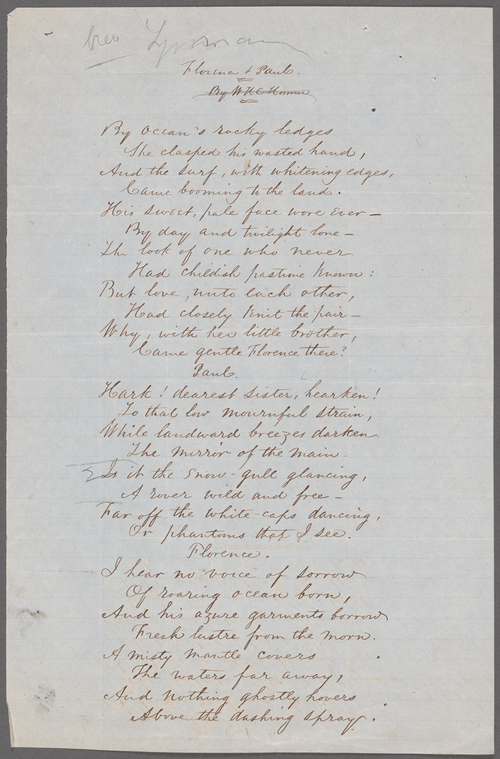 Florence & Paul.
By W H C Hosmer
By Ocean's rocky ledges
She clasped his wasted hand,
And the surf, with whitening edges,
Came booming to the land.
His sweet, pale face wore ever—
By day and twilight lone—
The look of one who never
Had childish pastime known:
But love, unto each other,
Had closely knit the pair—
Why, with her little brother,
Came gentle Florence there?
Paul.
Hark! dearest Sister, hearken!
To that low mournful strain,
While landward breezes darken
The mirror of the main.
Is it the Snow-gull glancing,
A rover wild and free—
Far off the white-caps dancing,
Or phantoms that I see.
Florence.
I hear no voice of sorrow
Of roaring ocean born,
And his azure garments borrow
Fresh lustre from the morn.
A misty mantle covers
The waters far away,
And nothing ghostly hovers
Above the dashing spray.